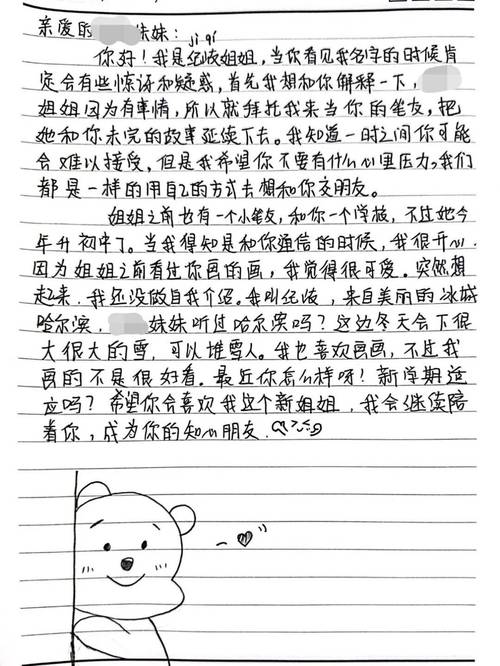 亲爱的 妹妹：
jì qí
你好！我是纪岐姐姐，当你看见我名字的时候肯
定会有些惊讶和疑惑，首先我想和你解释一下，
姐姐因为有事情，所以就拜托我来当你的笔友，把
她和你未完的故事延续下去。我知道一时之间你可能
会难以接受，但是我希望你不要有什么心里压力，我们
都是一样的用自己的方式去想和你交朋友。
姐姐之前也有一个小笔友，和你一个学校，不过她今
年升初中了。当我得知是和你通信的时候，我很开心，
因为姐姐之前看过你画的画，我觉得很可爱。突然想
起来，我还没做自我介绍。我叫纪岐，来自美丽的冰城
哈尔滨， 妹妹听过哈尔滨吗？这边冬天会下很
大很大的雪，可以堆雪人。我也喜欢画画，不过我
画的不是很好看。最近你怎么样呀！新学期适
应吗？希望你会喜欢我这个新姐姐，我会继续陪
着你，成为你的知心朋友.